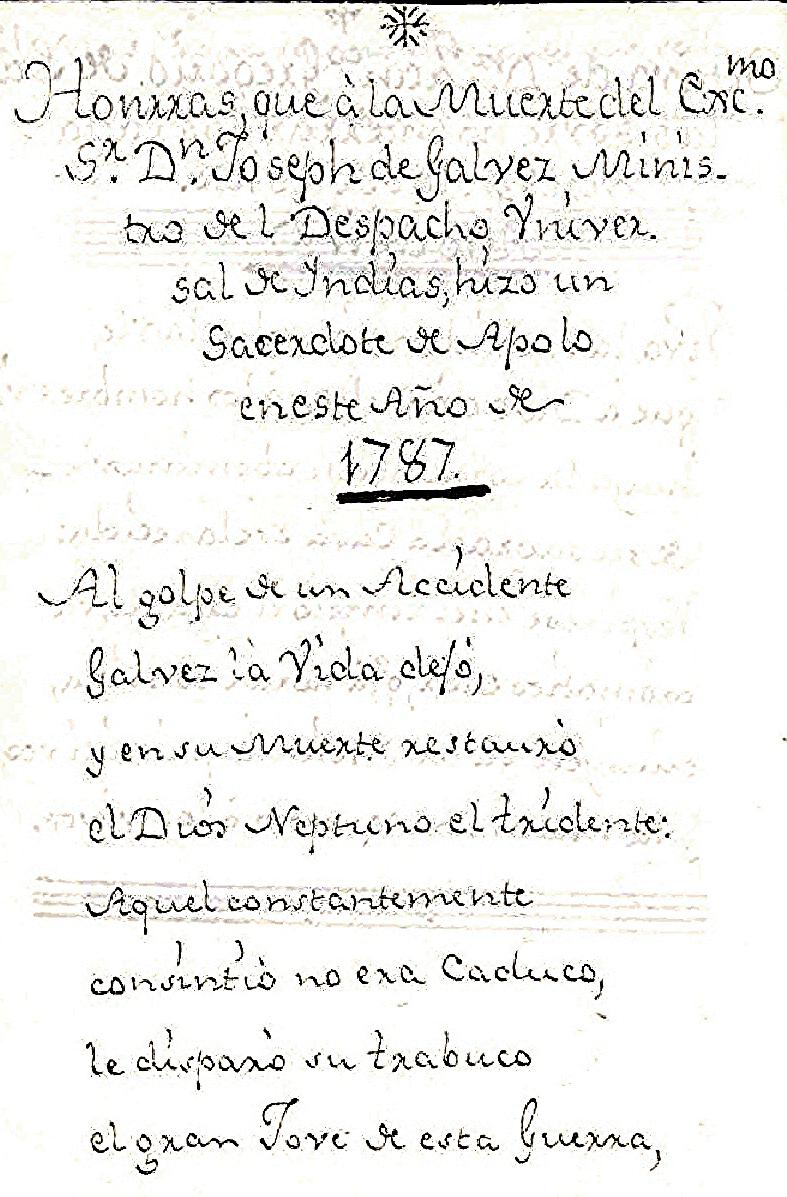 Honrras, que à la Muerte del Exc.mo
Sr. Dn. Joseph de Galvez Minis-
tro del Despacho Vniver-
sal de Indias, hizo un
Sacerdote de Apolo
en este Año de
1787.
Al golpe de un Accidente
Galvez la Vida dejó,
y en su Muerte restaurò
el Dios Neptuno el tridente:
Aquel constantemente
consintiò no era Caduco,
le disparò su trabuco
el gran Jove de esta Guerra,